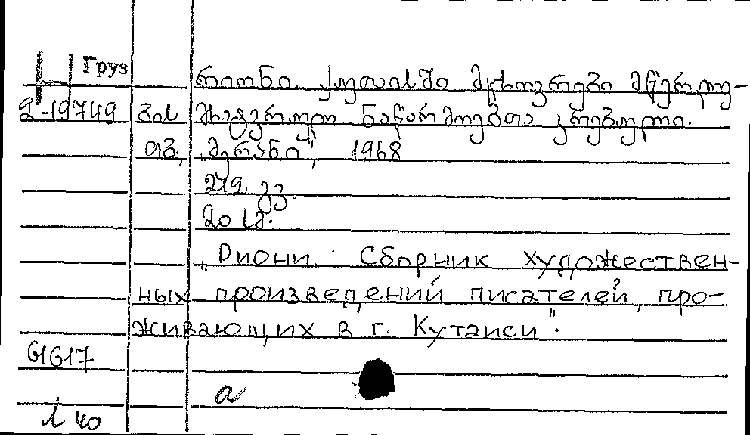 Груз
რიონი. ქუთაისში მცხოვრები მწერლე-
2-19749 ბის მხატვრულ ნაწარმოებთა კრებული.
თბ., „მერანი“, 1968
279 გვ.
20 
„Риони. Сборник художествен-
ных произведений писателей, про-
живающих в г. Кутаиси".
61617
a
40